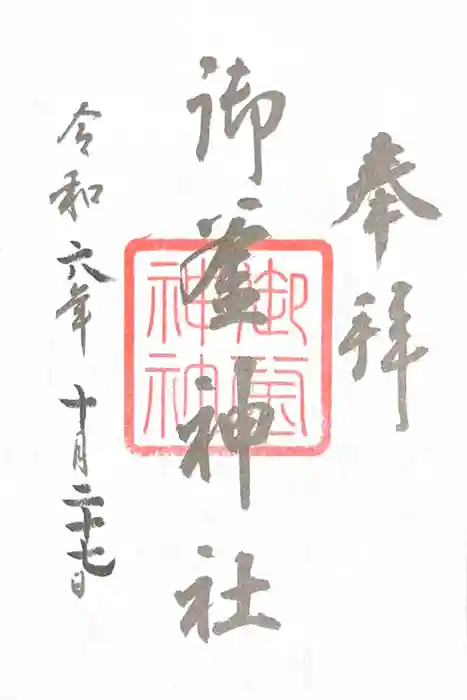 奉拝
御釜神社
令和六年 十月二十七日
御
神